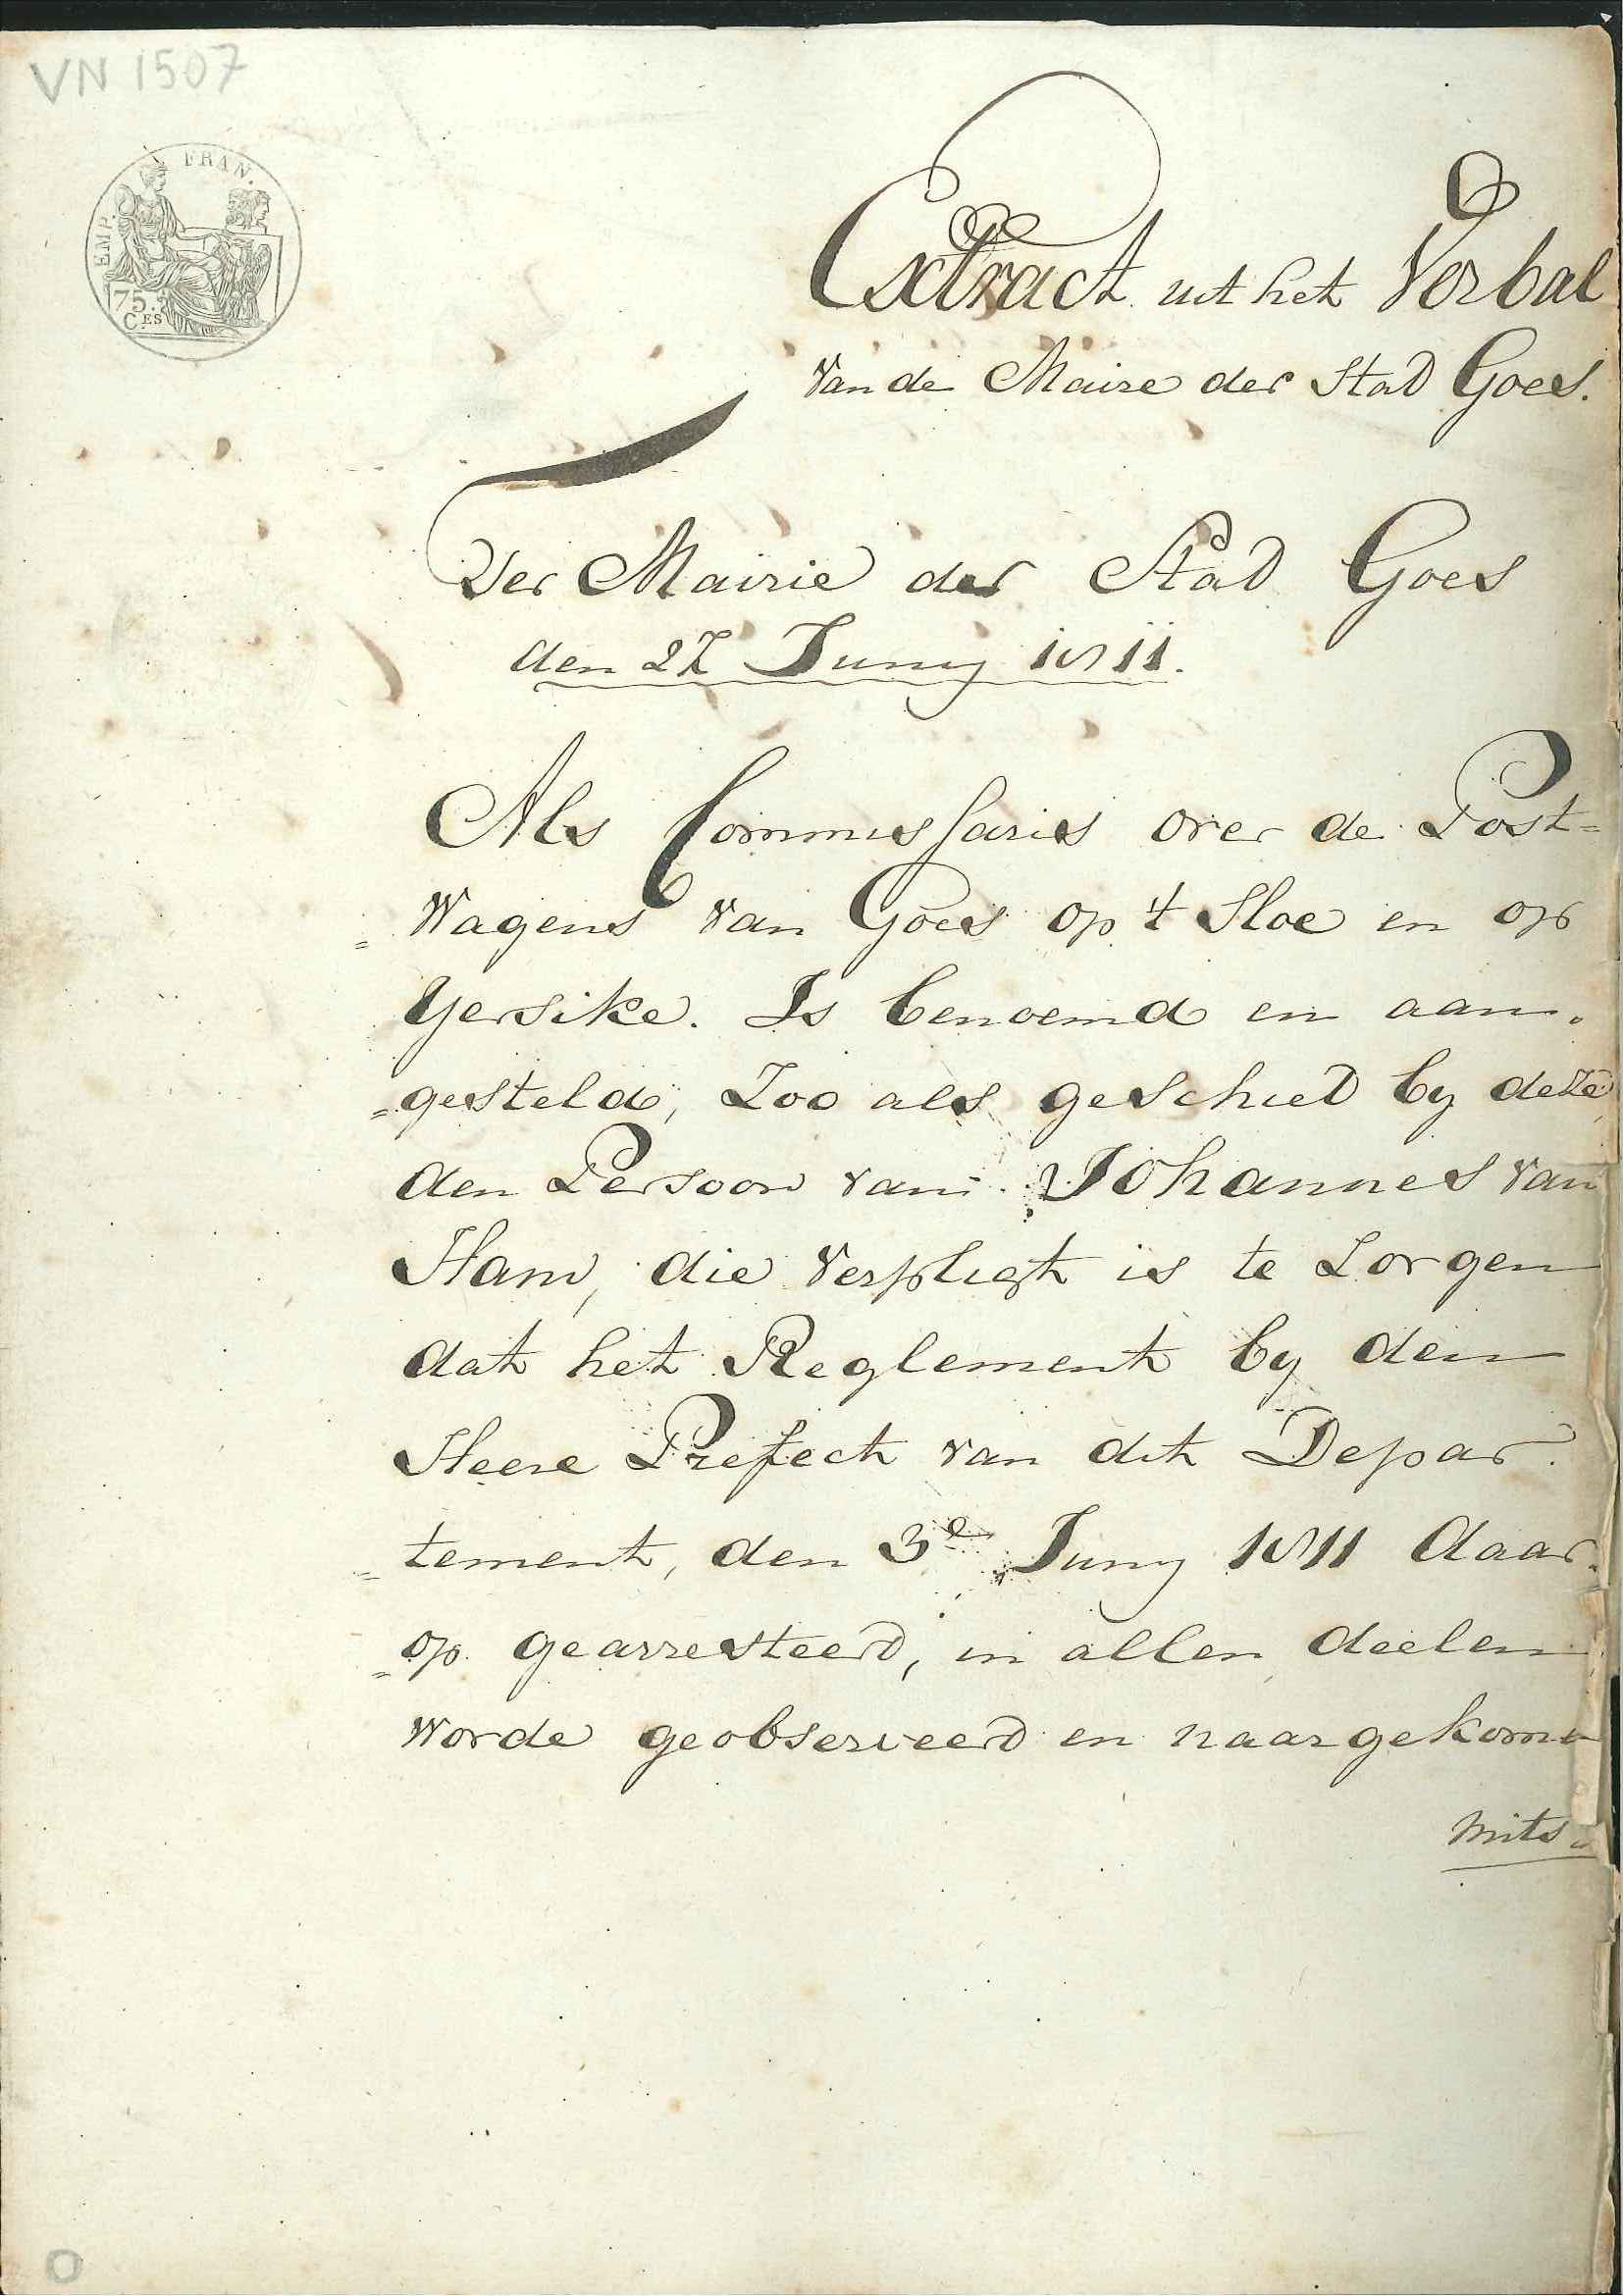 VN 1507
EMP. FRAN.
75.
CES
Extract uit het Verbal
van de Maire der Stad Goes.
Ter Mairie der Stad Goes
den 27 Juny 1811.
Als Commissaris over de Post=
=Wagens van Goes op 't Sloe en op
Yersike. Is benoemd en aan=
=gesteld, Zoo als geschied by deze
den Persoon van Johannes van
Ham, die verpligt is te Zorgen
dat het Reglement by den
Heere Prefect van dit Depar=
=tement, den 3e Juny 1811 daar=
=op gearresteerd, in allen deelen
worde geobserveerd en naargekome
mits